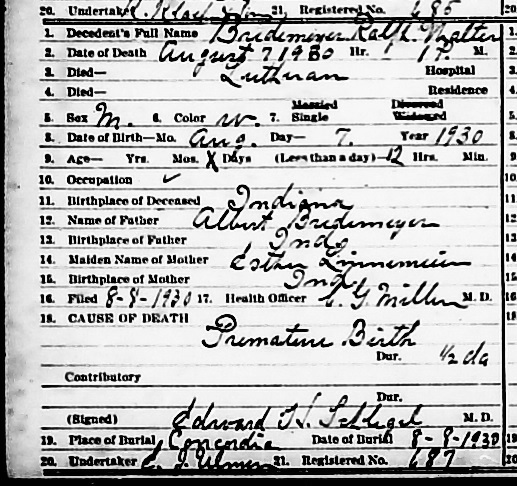 20. Undertaker 21. Registered No. 685
1. Decedent's Full Name Bridemeyer Ralph Walter
2. Date of Death August 7 1930 Hr. 17. M.
3. Died— Lutheran Hospital
4. Died— Residence
5. Sex M. 6. Color W. 7. Married Single Divorced Widowed
8. Date of Birth—Mo. Aug. Day— 7. Year 1930
9. Age— Yrs. Mos. X Days (Less than a day)—12 Hrs. Min.
10. Occupation ✓
11. Birthplace of Deceased Indiana
12. Name of Father Albert Bridemeyer
13. Birthplace of Father Ind.
14. Maiden Name of Mother Esther Linnemeier
15. Birthplace of Mother Ind.
16. Filed 8-8-1930 17. Health Officer G Miller M. D.
18. CAUSE OF DEATH
Premature Birth
Dur. 1/2 da
Contributory
Dur.
(Signed) Edward H. Schlegel M. D.
19. Place of Burial Concordia Date of Burial 8-8-1930
20. Undertaker 21. Registered No. 687